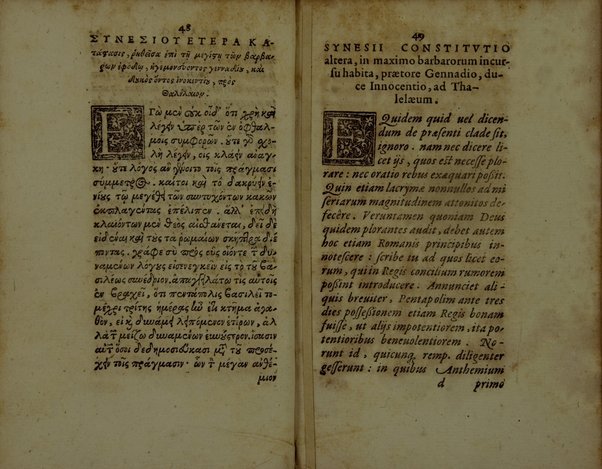 48
ΣΥΝΕΣΙΟΥ ΕΤΕΡΑ ΚΑ-
τάστασις, ῥηθεῖσα ἐπὶ τῇ μεγίστῃ τῶν βαρβά-
ρων ἐφόδῳ, ἡγεμονεύοντος γενναδίου, καὶ
δουκὸς ὄντος ἰνοκεντίου, πρὸς
Θαλέλαιον.
ΕΓὼ μὲν οὐκ οἶδ' ὅ,τι χρὴ καὶ
λέγειν ὑπὲρ τῶν ἐν ὀφθαλ-
μοῖς συμφορῶν.
λὴ λέγειν, οἷς κλαίειν ἀνάγ-
κη· ὅτι λόγος
σύμμετρος. καίτοι καὶ τὸ δακρύειν ἐ-
νίους τῷ μεγέθει τῶν συντυχόντων κακῶν
ἐκπλαγέντας ἐπέλιπεν. ἀλλ' ἐπειδὴ
κλαιόντων μὲν θεὸς αἰσθάνεται, δεῖ δὲ
εἰδέναι καὶ τοὺς τὰ ῥωμαίων σκῆπτρα διέ-
ποντας. γράφε σὺ πρὸς οὓς οἷόν τε δυ-
ναμένους λόγους εἰσενεγκεῖν εἰς τὸ τοῦ βα-
σιλέως συνέδριον. ἀπαγγειλάτω τις αὐτοῖς
ἐν βραχεῖ, ὅτι πεντάπολις βασιλεῖ το-
μέχρι τρίτης ἡμέρας κτῆμα ἀγα-
θὸν, εἰ καὶ δυνάμει λειπόμενον ἑτέρων, ἀλ-
λὰ τῶν μείζω δυναμένων εὐνούστερον. ἴσασιν
αὐτὸ ὅσοι δεδημοσιεύκασι μετὰ τοῦ προσέ-
χειν τοῖς πράγμασιν· ὧν τὸν μέγαν ἀνθέ-
μιον
49
SYNESII CONSTITVTIO
altera, in maximo barbarorum incur
su habita, prætore Gennadio, du-
ce Innocentio, ad Tha-
lelæum.
EQuidem quid uel dicen
dum de præsenti clade sit,
ignoro. nam nec dicere li
cet ijs, quos est necesse plo-
rare: nec oratio rebus exæquari posit.
Quin etiam lacrymæ nonnullos ad mi
seriarum magnitudinem attonitos de-
fecêre. Veruntamen quoniam Deus
quidem plorantes audit, debet autem
hoc etiam Romanis principibus in-
notescere: scribe tu ad quos licet eo-
rum, qui in Regis concilium rumorem
posint introducere. Annunciet ali-
quis breuiter, Pentapolim ante tres
dies possessionem etiam Regis bonam
fuisse, ut alijs impotentiorem, ita po-
tentioribus beneuolentiorem. No-
runt id, quicunq; remp. diligenter
gesserunt: in quibus Anthemium
d primo